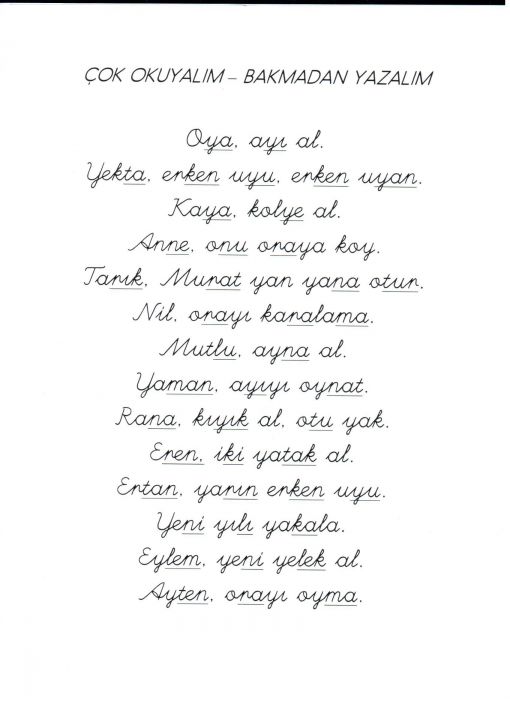 ÇOK OKUYALIM – BAKMADAN YAZALIM
Oya, ayı al.
Yekta, erken uyu, erken uyan.
Kaya, kolye al.
Anne, onu oraya koy.
Tarık, Murat yan yana otur.
Nil, orayı karalama.
Mutlu, ayna al.
Yaman, ayıyı oynat.
Rana, kıyık al, otu yak.
Eren, iki yatak al.
Ertan, yarın erken uyu.
Yeni yılı yakala.
Eylem, yeni yelek al.
Ayten, orayı oyma.